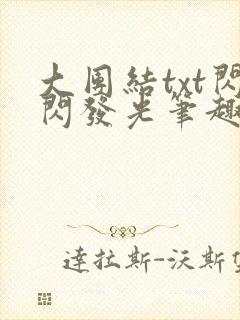 大團結txt閃
閃發光筆趣
達拉斯-沃斯堡